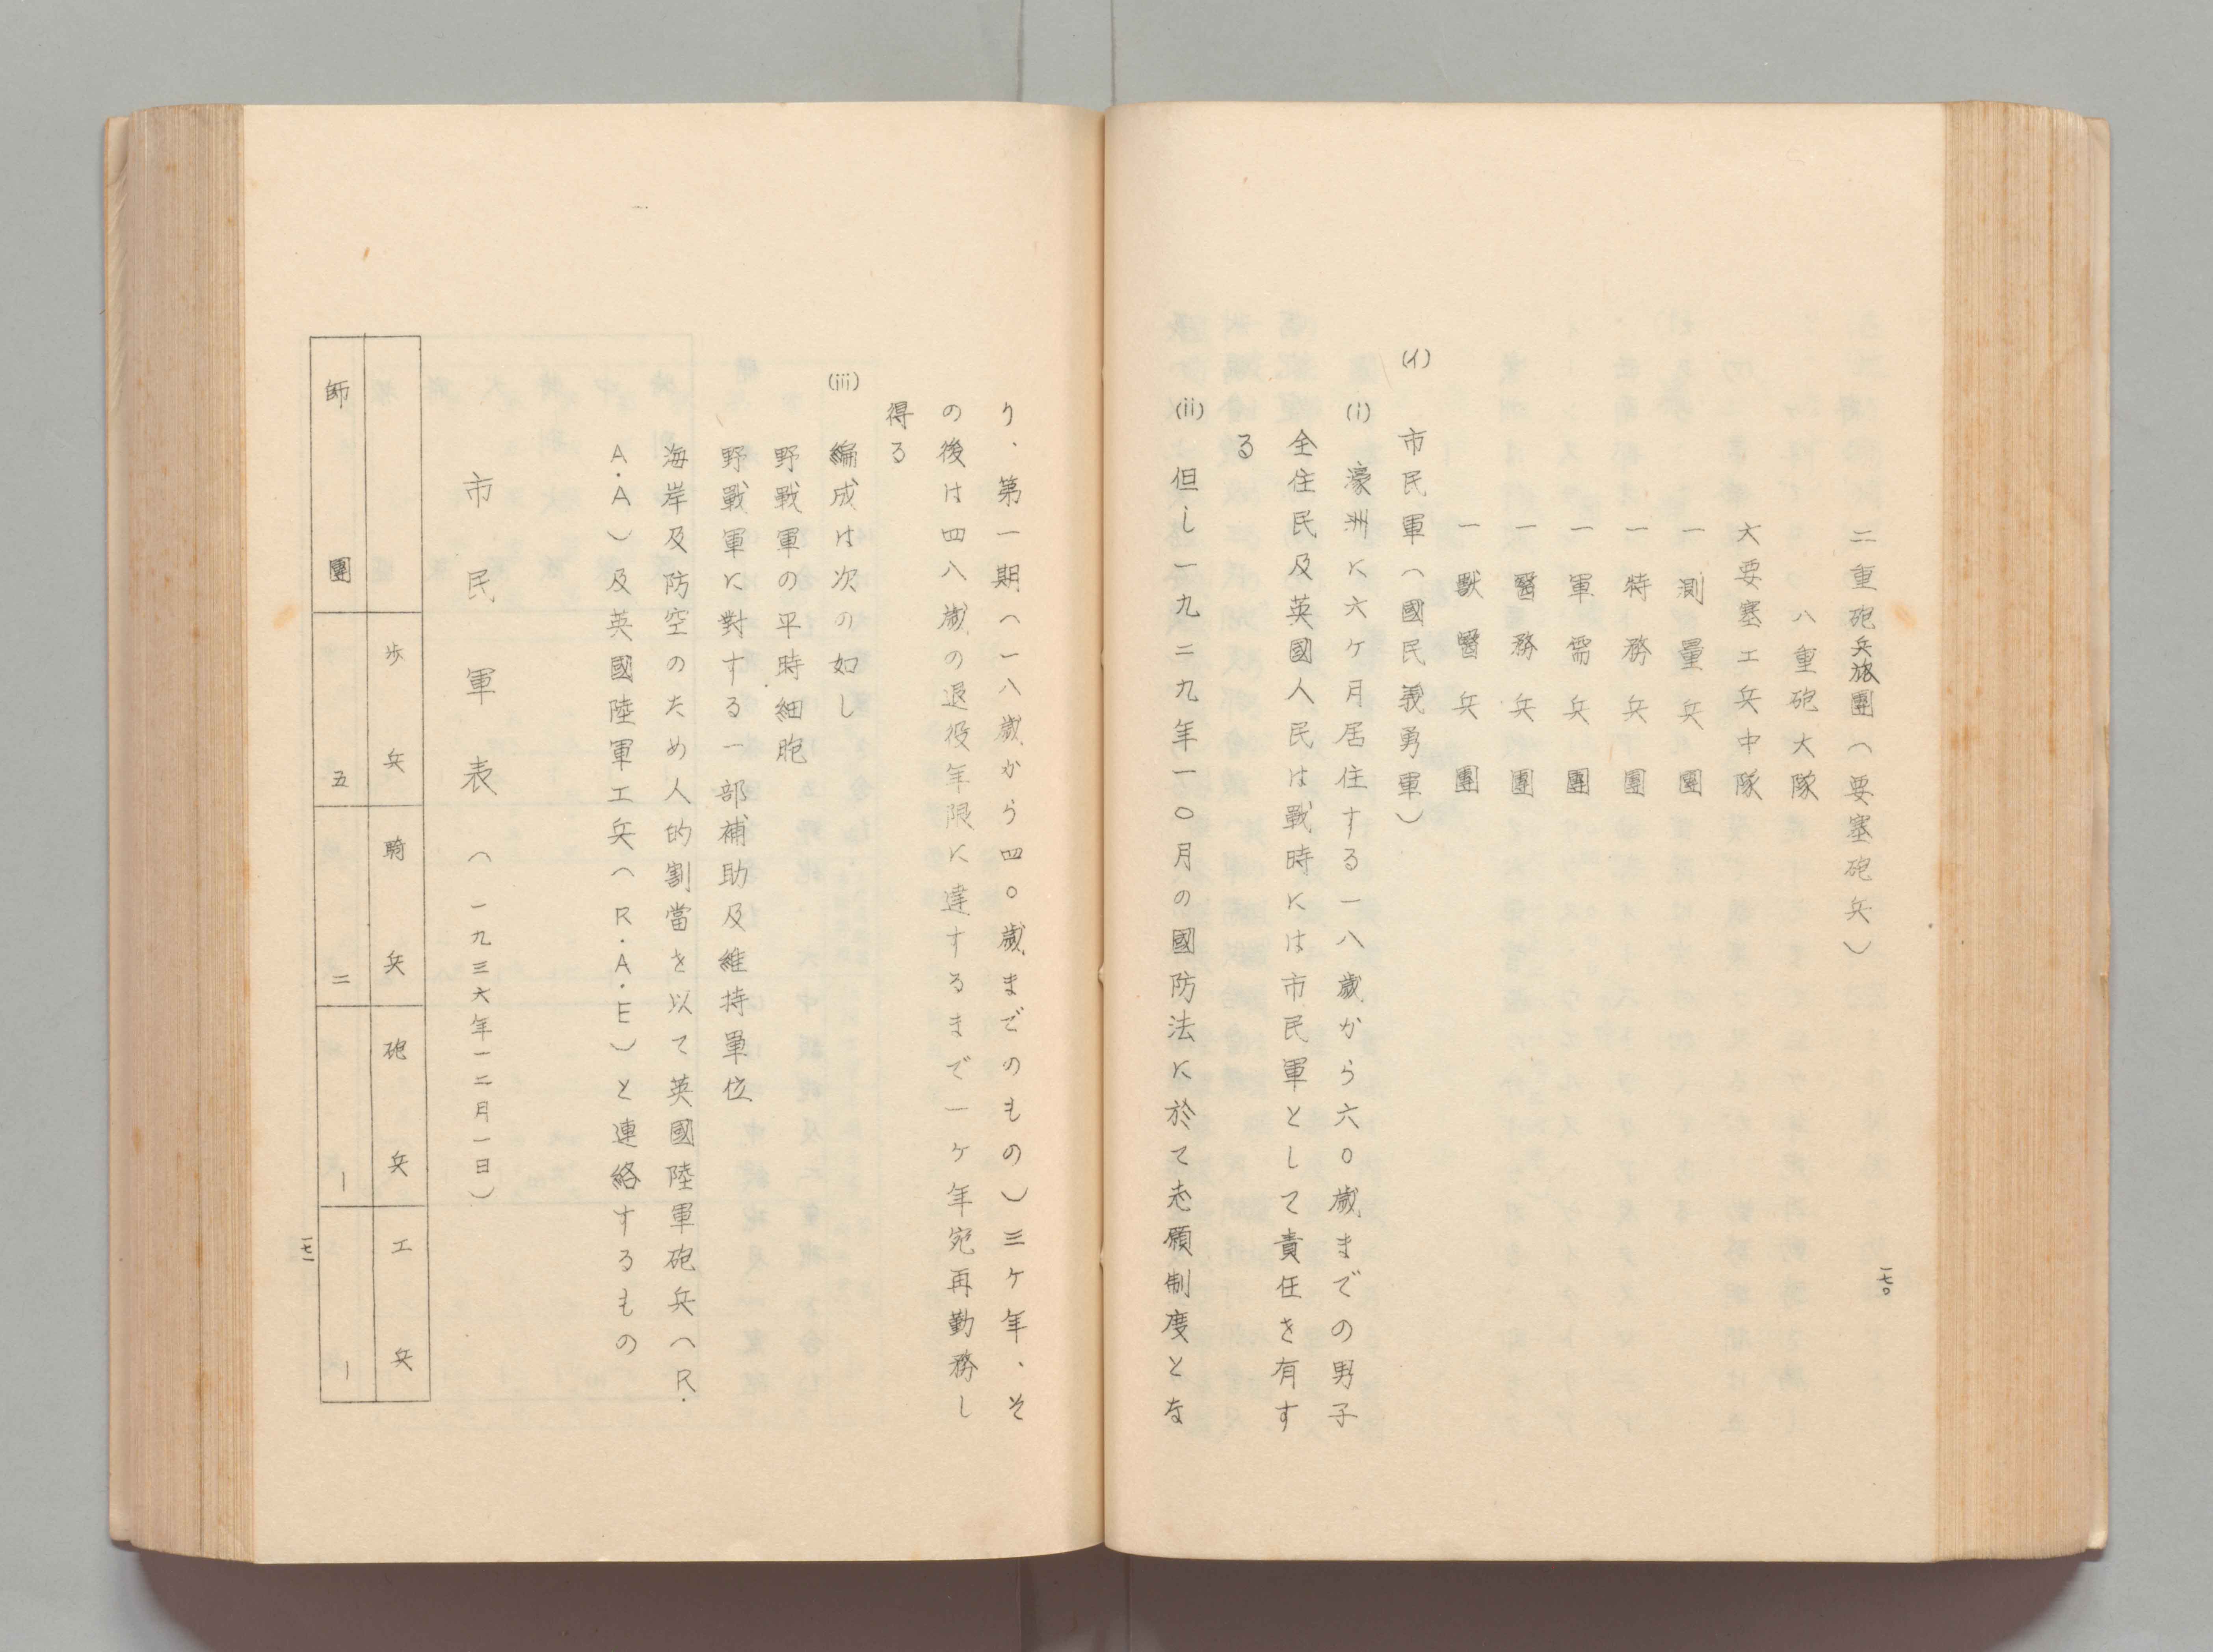 一七〇
二重砲兵旅團(要塞砲兵)
八重砲大隊
大要塞工兵中隊
一測量兵團
一特務兵團
一軍需兵團
一醫務兵團
一獸醫兵團
(イ) 市民軍(國民義勇軍)
(i) 濠洲に六ケ月居住する一八歳から六〇歳までの男子
全住民及英國人民は戰時には市民軍として責任を有す
る
(ii) 但し一九二九年一〇月の國防法に於て志願制度とな
り、第一期(一八歳から四〇歳までのもの)三ケ年、そ
の後は四八歳の退役年限に達するまで一ケ年宛再勤務し
得る
(iii) 編成は次の如し
野戰軍の平時細胞
野戰軍に對する一部補助及維持單位
海岸及防空のため人的割當を以て英國陸軍砲兵(R.
A.A)及英國陸軍工兵(R.A.E)と連絡するもの
市民軍表(一九三六年一二月一日)
歩兵 騎兵 砲兵 工兵
師團 五 二 一 一
一七一